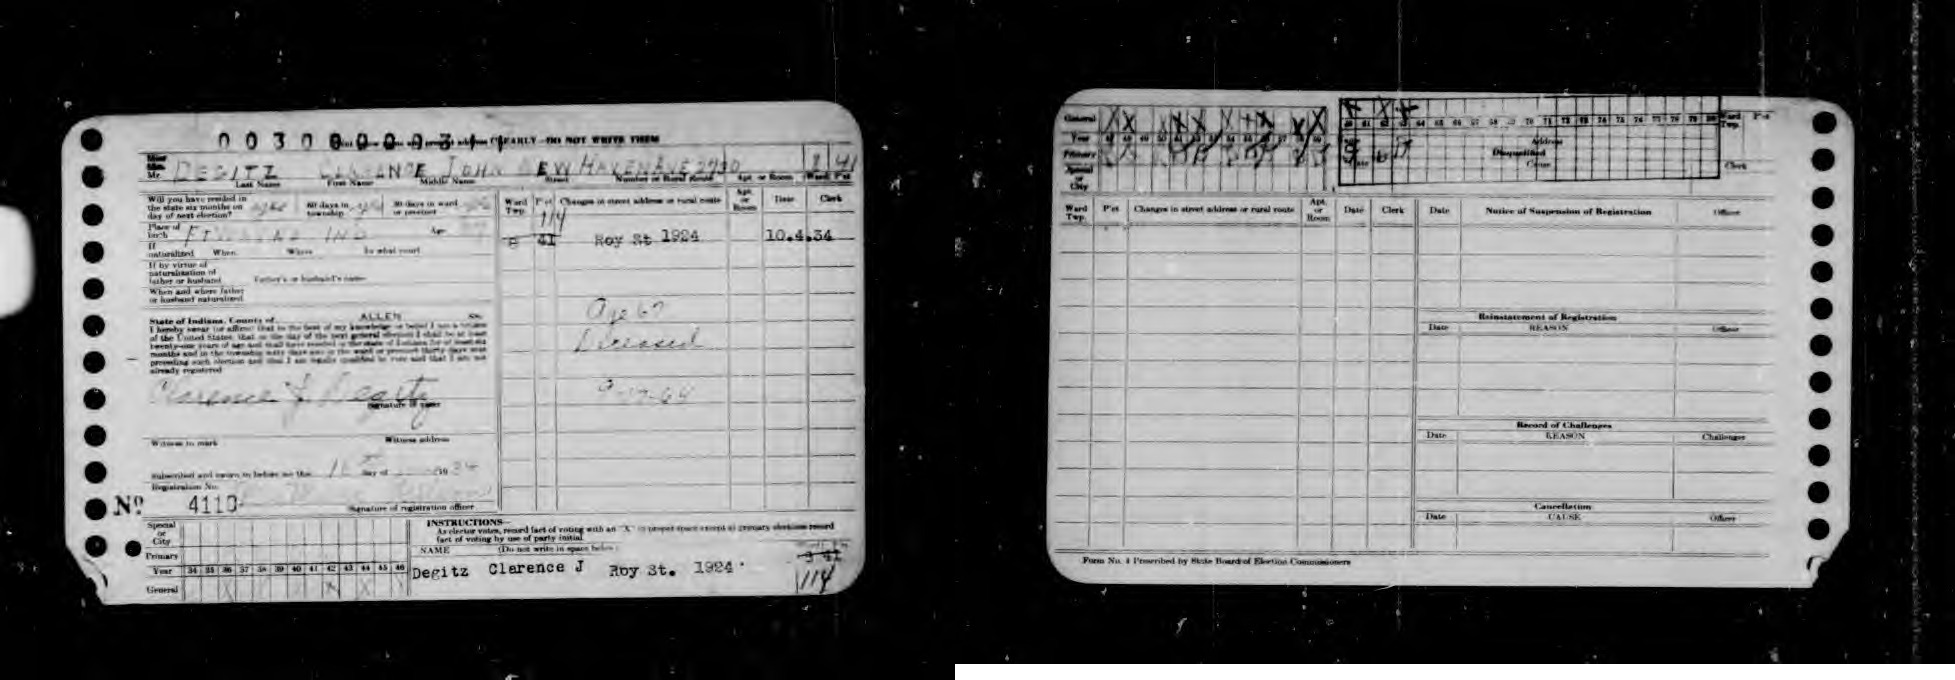 PRINT CLEARLY—DO NOT WRITE THEM
Miss
Mrs.
Mr. DEGITZ CLARENCE JOHN NEW HAVEN AVE 2730 8 41
Last Name First Name Middle Name Street Number or Rural Route Apt. or Room Ward P'ct
Will you have resided in the state six months on day of next election? yes 60 days in township yes 30 days in ward or precinct yes
Place of birth FT WAYNE IND Age
If naturalized When Where In what court
If by virtue of naturalization of father or husband Father's or husband's name
When and where father or husband naturalized
State of Indiana, County of ALLEN SS:
I hereby swear (or affirm) that to the best of my knowledge or belief I am a citizen
of the United States, that on the day of the next general election I shall be at least
twenty-one years of age and shall have resided in the state of Indiana for at least six
months and in the township sixty days and in the ward or precinct thirty days next
preceding such election and that I am legally qualified to vote and that I am not
already registered
Clarence J. Degitz
Signature of voter
Witness to mark Witness address
Subscribed and sworn to before me this day of 19 34
Registration No.
No. 4110
Signature of registration officer
Ward Twp. P'ct Changes in street address or rural route Apt. or Room Date Clerk
114
8 41 Roy St 1924 10.4.34
Age 67
Deceased
9-17-64
Special or City
Primary
Year 34 35 36 37 38 39 40 41 42 43 44 45 46
General X X X X
INSTRUCTIONS—
As elector votes, record fact of voting with an "X" in proper space except at primary elections record
fact of voting by use of party initial
NAME (Do not write in space below)
Degitz Clarence J Roy St. 1924
114
General
Year
Primary
Special or City
60 61 62 63 64 65 66 67 68 69 70 71 72 73 74 75 76 77 78 79 80
Address
Disqualified
Cause
Ward Twp. P'ct
Clerk
Ward Twp. P'ct Changes in street address or rural route Apt. or Room Date Clerk Date Notice of Suspension of Registration Officer
Reinstatement of Registration
Date REASON Officer
Record of Challenges
Date REASON Challenger
Cancellation
Date CAUSE Officer
Form No. 4 Prescribed by State Board of Election Commissioners